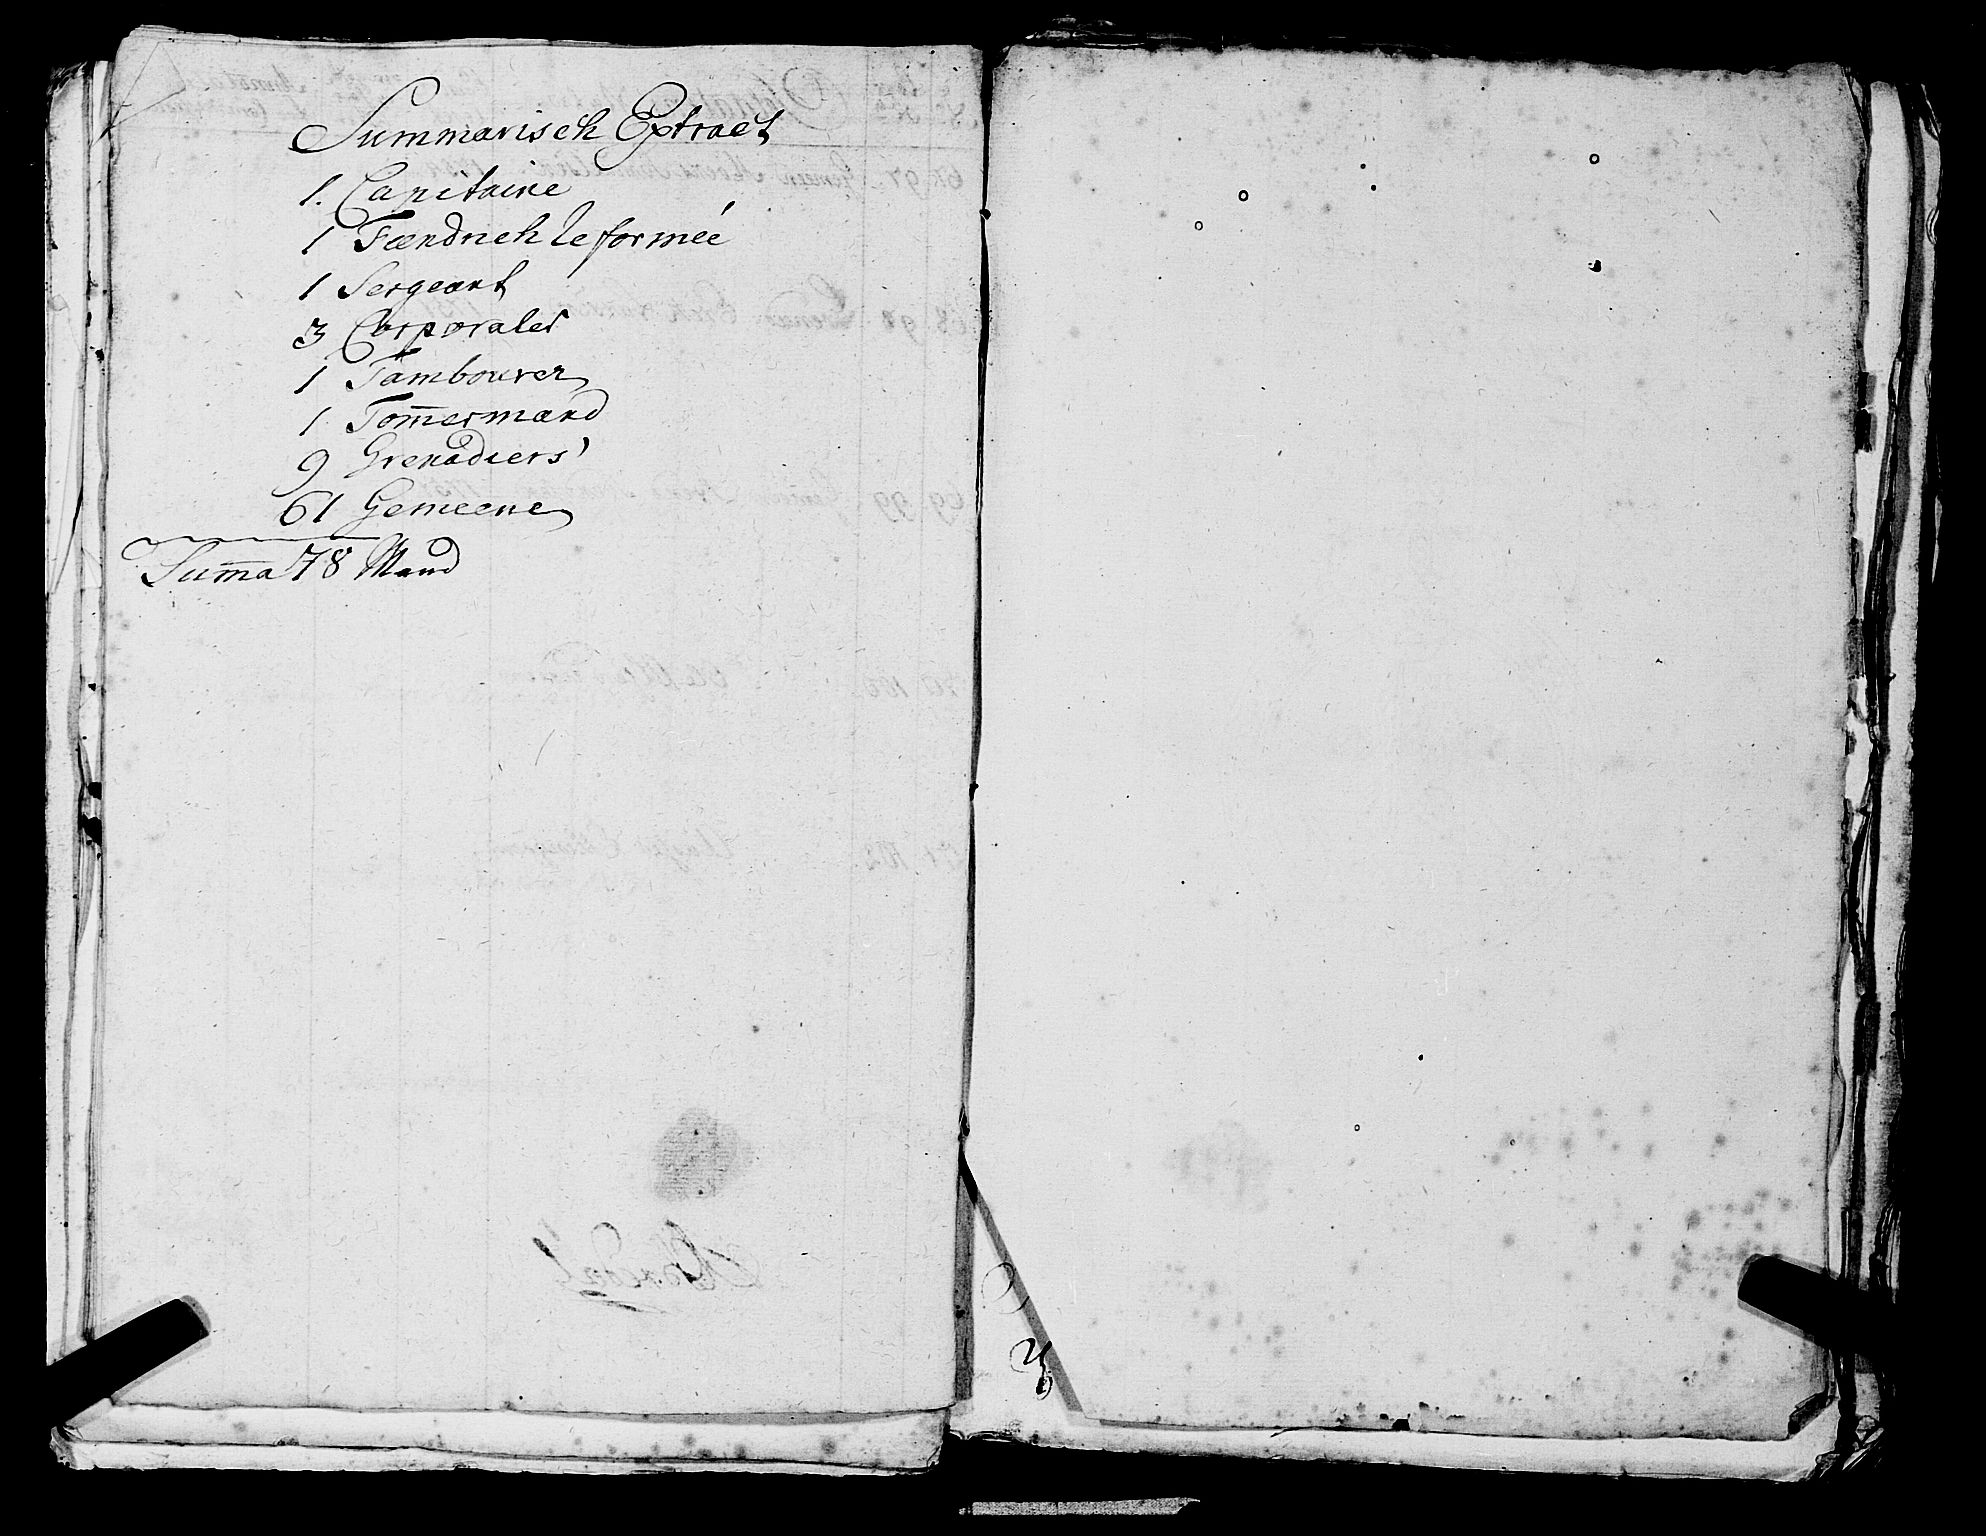 Summarisch Extract
1. Capitaine
1 Fændrich Reformeé
1 Sergeant
3 Corporaler
1 Tambourer
1 Tom̅ermand
9 Grenadiers
61 Gemeene
Sum̅a 78 Mand